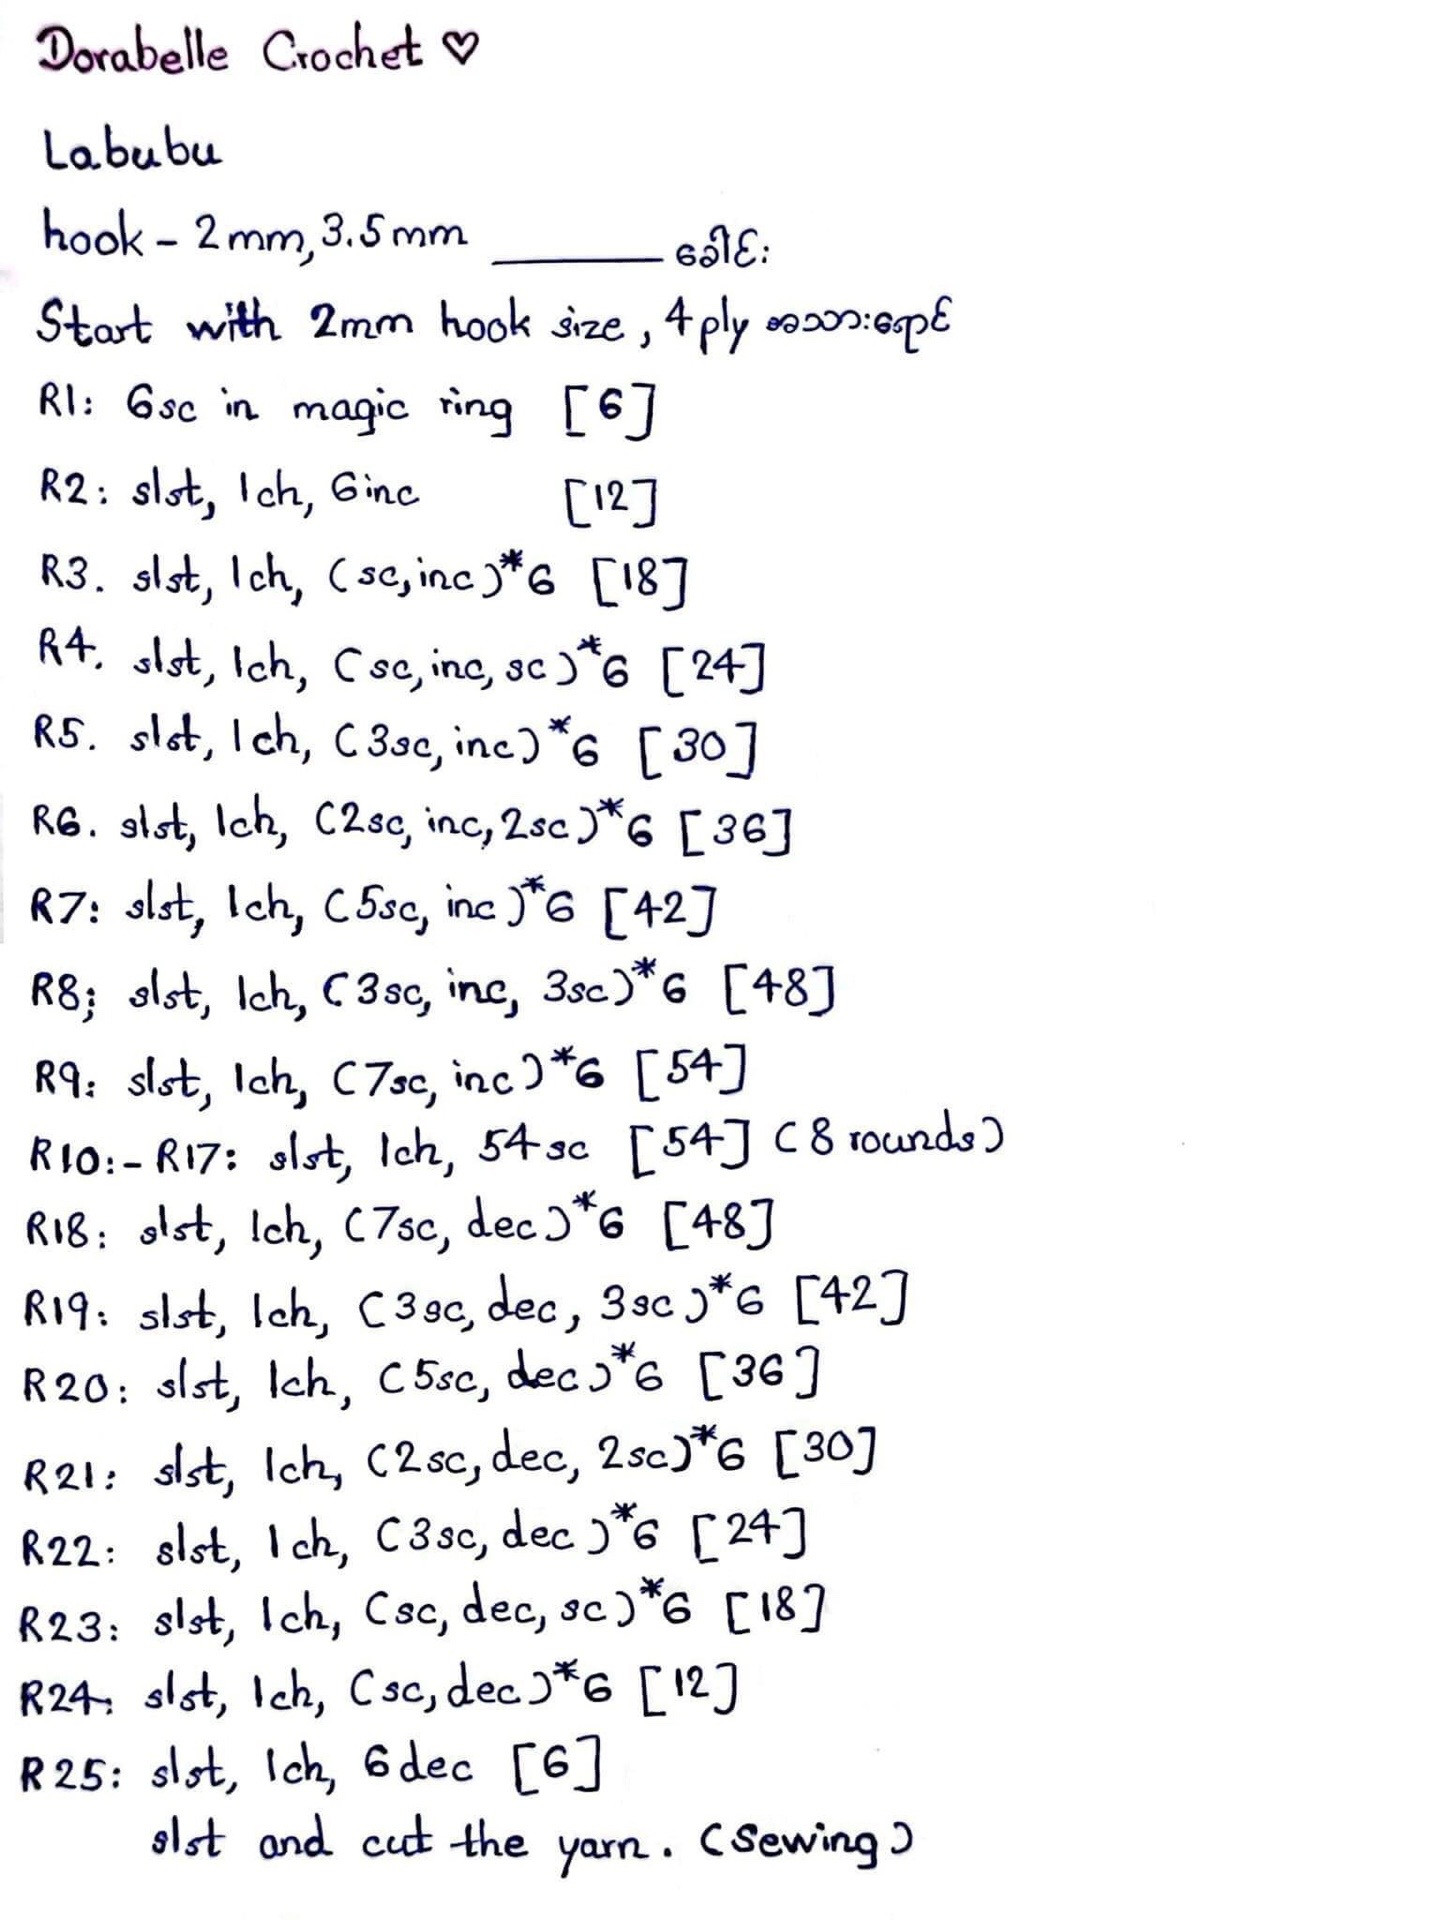 Dorabelle Crochet ♡
Labubu
hook - 2mm, 3.5mm ______ ခေါင်း
Start with 2mm hook size, 4ply အသားရောင်
R1: 6sc in magic ring [6]
R2: slst, 1ch, 6inc [12]
R3. slst, 1ch, (sc, inc)*6 [18]
R4. slst, 1ch, (sc, inc, sc)*6 [24]
R5. slst, 1ch, (3sc, inc)*6 [30]
R6. slst, 1ch, (2sc, inc, 2sc)*6 [36]
R7: slst, 1ch, (5sc, inc)*6 [42]
R8; slst, 1ch, (3sc, inc, 3sc)*6 [48]
R9: slst, 1ch, (7sc, inc)*6 [54]
R10:- R17: slst, 1ch, 54sc [54] (8 rounds)
R18: slst, 1ch, (7sc, dec)*6 [48]
R19: slst, 1ch, (3sc, dec, 3sc)*6 [42]
R20: slst, 1ch, (5sc, dec)*6 [36]
R21: slst, 1ch, (2sc, dec, 2sc)*6 [30]
R22: slst, 1ch, (3sc, dec)*6 [24]
R23: slst, 1ch, (sc, dec, sc)*6 [18]
R24: slst, 1ch, (sc, dec)*6 [12]
R25: slst, 1ch, 6dec [6]
slst and cut the yarn. (Sewing)